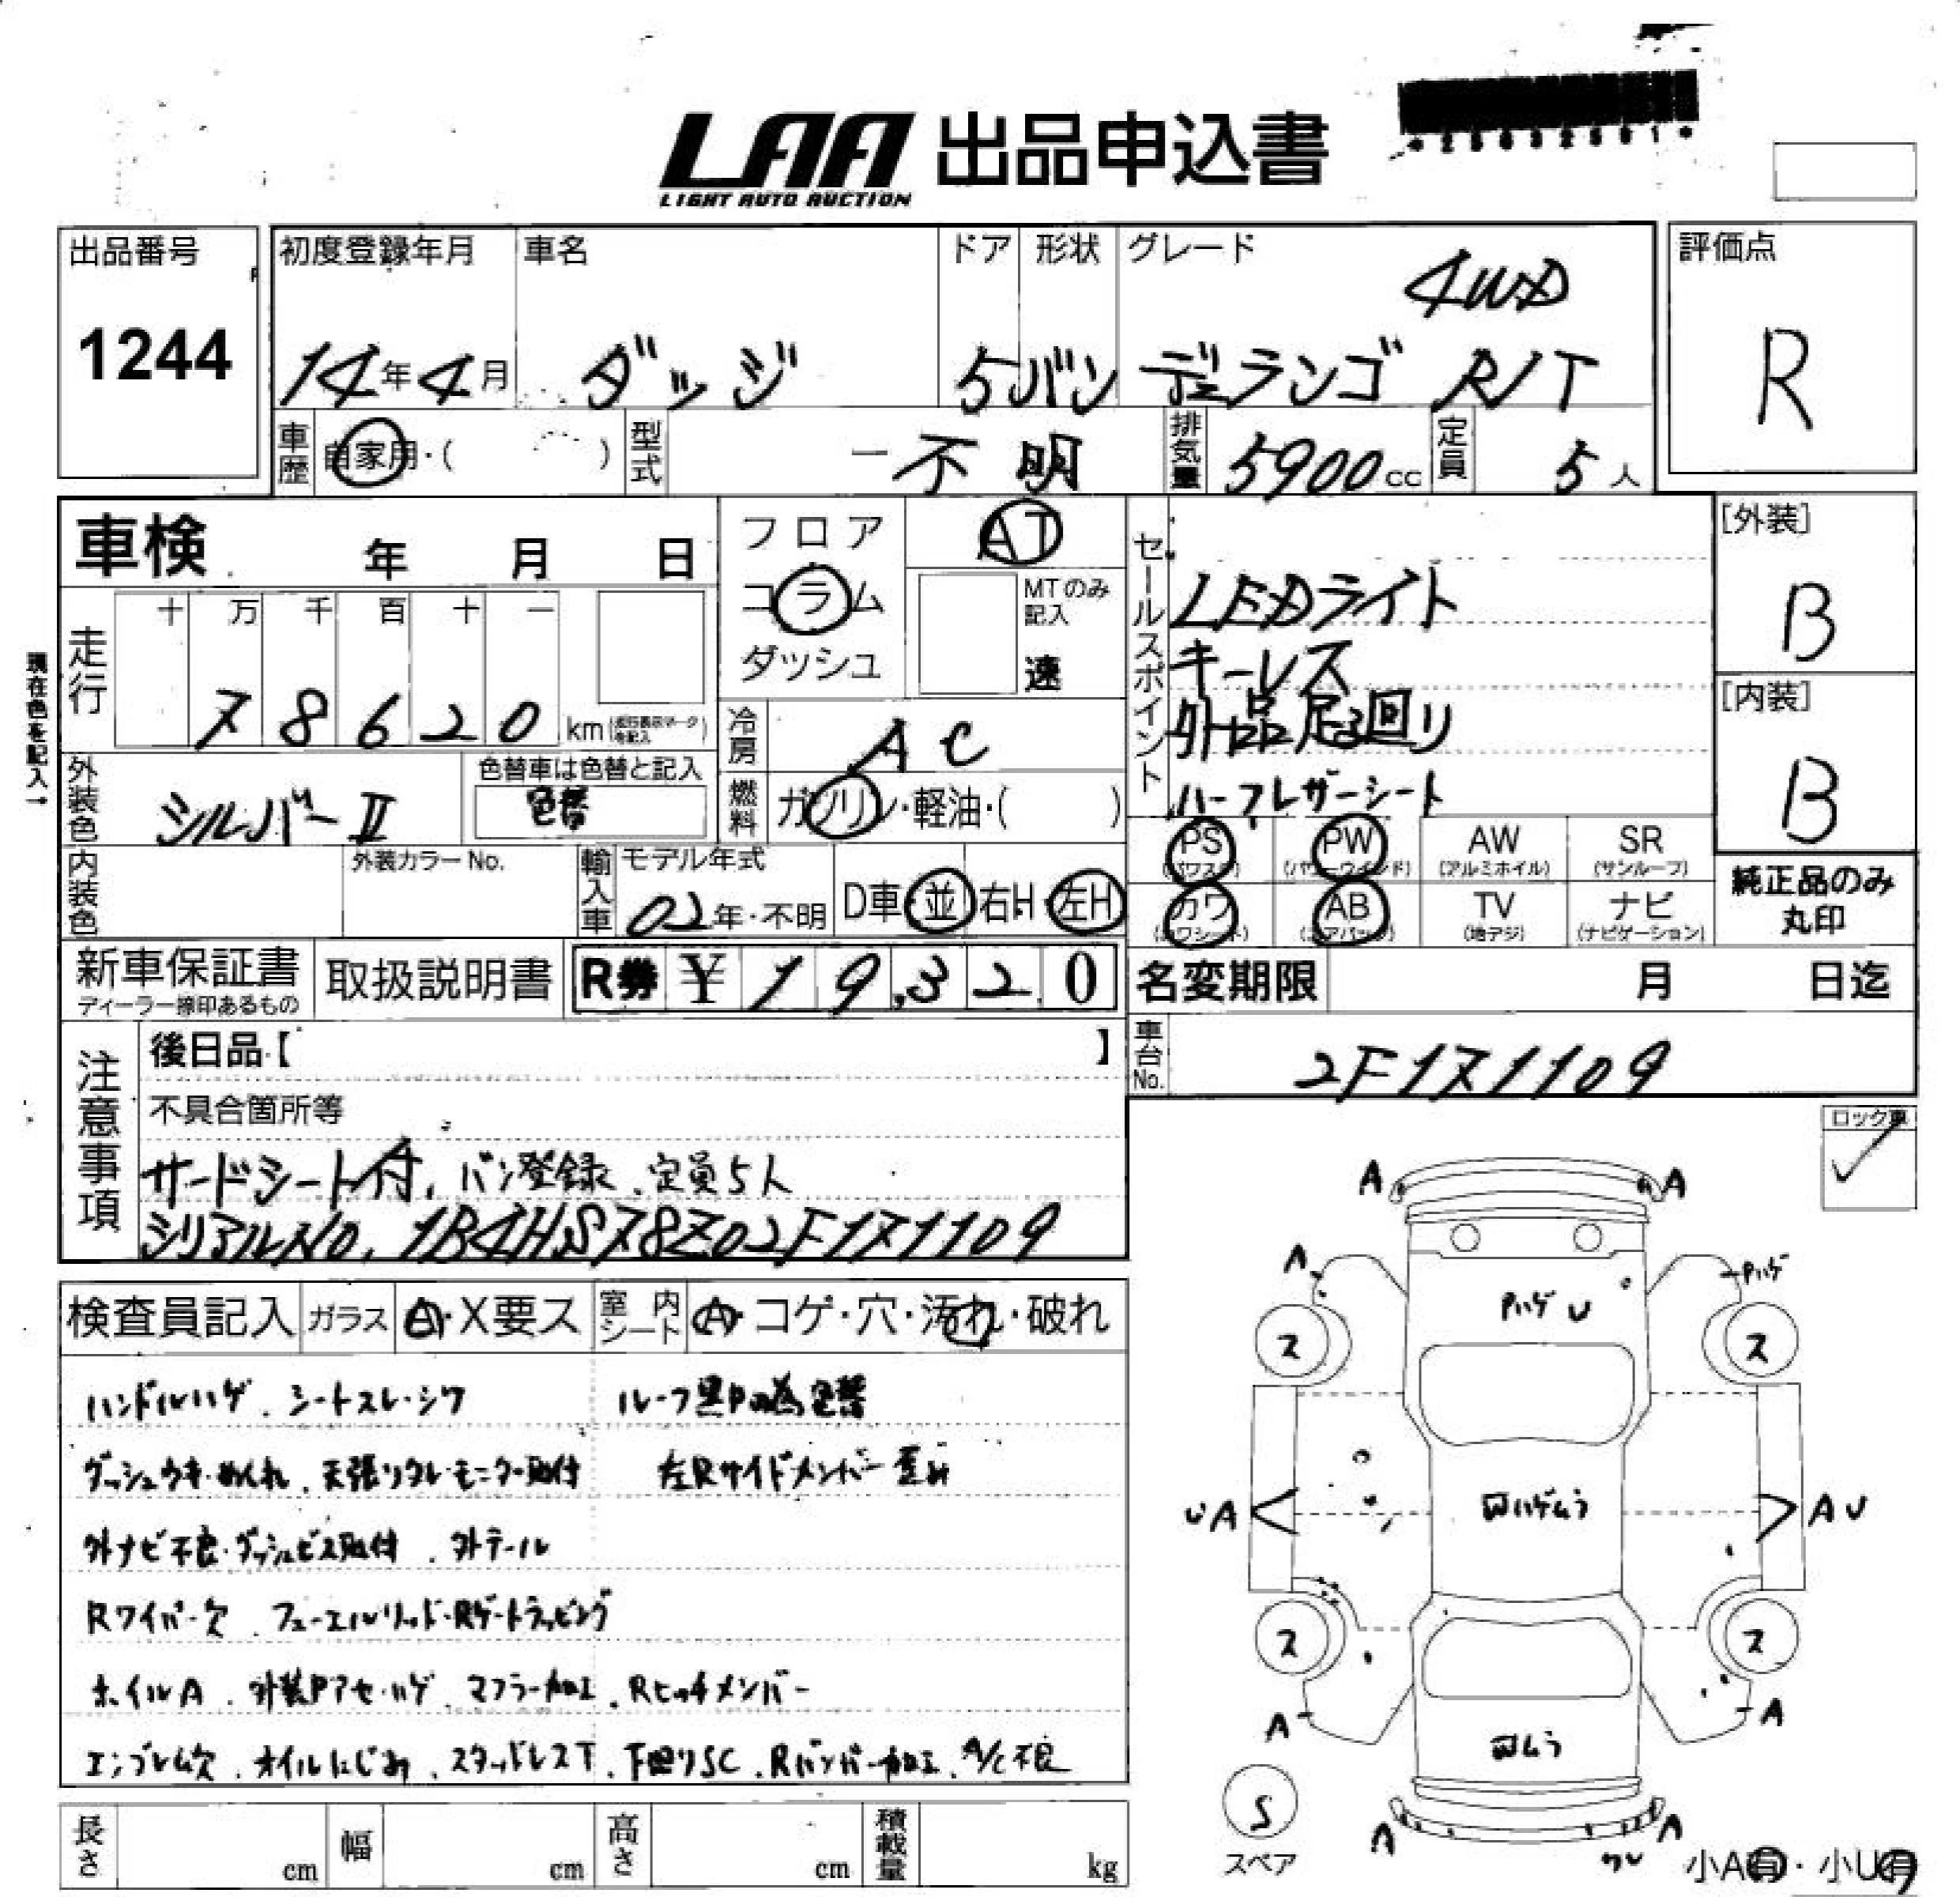 LAA 出品申込書
LIGHT AUTO AUCTION
出品番号
1244
初度登録年月
14年4月
車名
ダッジ
ドア
5
形状
バン
グレード
4WD
デュランゴ R/T
評価点
R
車歴
自家用・( )
型式
-不明
排気量
5900cc
定員
5人
車検 年 月 日
フロア
コラム
ダッシュ
AT
MTのみ記入
速
セールスポイント
LEDライト
キーレス
外品足回り
ハーフレザーシート
[外装]
B
[内装]
B
現在色を記入→
走行
十 万 千 百 十 一
7 8 6 2 0 km
冷房
AC
外装色
シルバーII
色替車は色替と記入
色替
燃料
ガソリン・軽油・( )
PS
(パワステ)
PW
(パワーウインド)
AW
(アルミホイル)
SR
(サンルーフ)
カワ
(カワシート)
AB
(エアバッグ)
TV
(地デジ)
ナビ
(ナビゲーション)
純正品のみ
丸印
内装色
外装カラーNo.
輸入車
モデル年式
02年・不明
D車・並 右H・左H
新車保証書
ディーラー捺印あるもの
取扱説明書
R券 ¥19,320
名変期限 月 日迄
車台No.
2F171109
注意事項
後日品【 】
不具合箇所等
サードシート付、バン登録、定員5人
シリアルNo. 1B4HS78Z02F171109
ロック車
検査員記入
ガラス
A・X要ス
室内シート
A・コゲ・穴・汚れ・破れ
ハンドルハゲ、シートスレ・シワ
ルーフ黒Pの為色替
ダッシュウキ・めくれ、天張リタレ・モニター取付
左Rサイドメンバー歪み
外ナビ不良・ダッシュビス取付、外テール
Rワイパー欠、フューエルリッド・Rゲートラッピング
ホイルA、外装Pアセ・ハゲ、マフラー加工、Rヒッチメンバー
エンブレム欠、オイルにじみ、スタッドレスT、下回りSC、Rバンパー加工、A/C不良
A
A
A
Pハゲ
Pハゲ U
ス
ス
UA
Pハゲムラ
AU
ス
ス
A
A
Pムラ
S
スペア
A
A
ワレ
小A有・小U有
長さ
cm
幅
cm
高さ
cm
積載量
kg